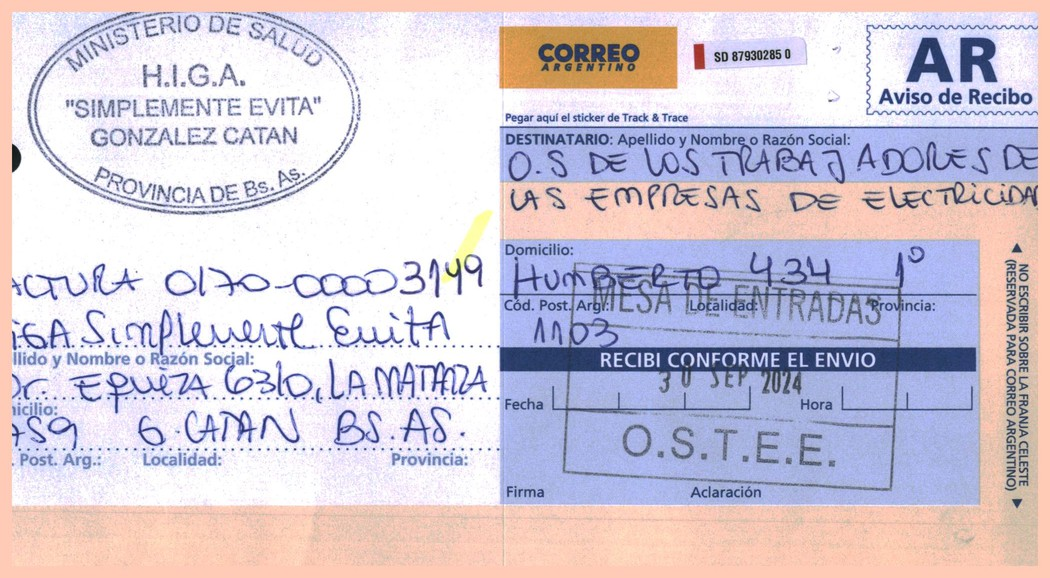 MINISTERIO DE SALUD
H.I.G.A.
"SIMPLEMENTE EVITA"
GONZALEZ CATAN
PROVINCIA DE Bs. As.
ACTURA 0170-00003149
IGA Simplemente Evita
llido y Nombre o Razón Social:
Dr. Equiza 6310, LA MATANZA
icilio:
759 G. CATAN BS. AS.
. Post. Arg.: Localidad: Provincia:
CORREO
ARGENTINO
SD 87930285 0
AR
Aviso de Recibo
Pegar aquí el sticker de Track & Trace
DESTINATARIO: Apellido y Nombre o Razón Social:
O.S DE LOS TRABAJADORES DE
LAS EMPRESAS DE ELECTRICIDA
Domicilio:
HUMBERTO 434 1º
Cód. Post. Arg.: Localidad: Provincia:
1103
MESA DE ENTRADAS
RECIBI CONFORME EL ENVIO
30 SEP 2024
Fecha Hora
O.S.T.E.E.
Firma Aclaración
NO ESCRIBIR SOBRE LA FRANJA CELESTE
(RESERVADA PARA CORREO ARGENTINO)